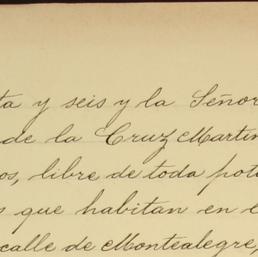 ta y seis y la Señor
de la Cruz Martin
os, libre de toda pot
s que habitan en e
calle de Montealegre,